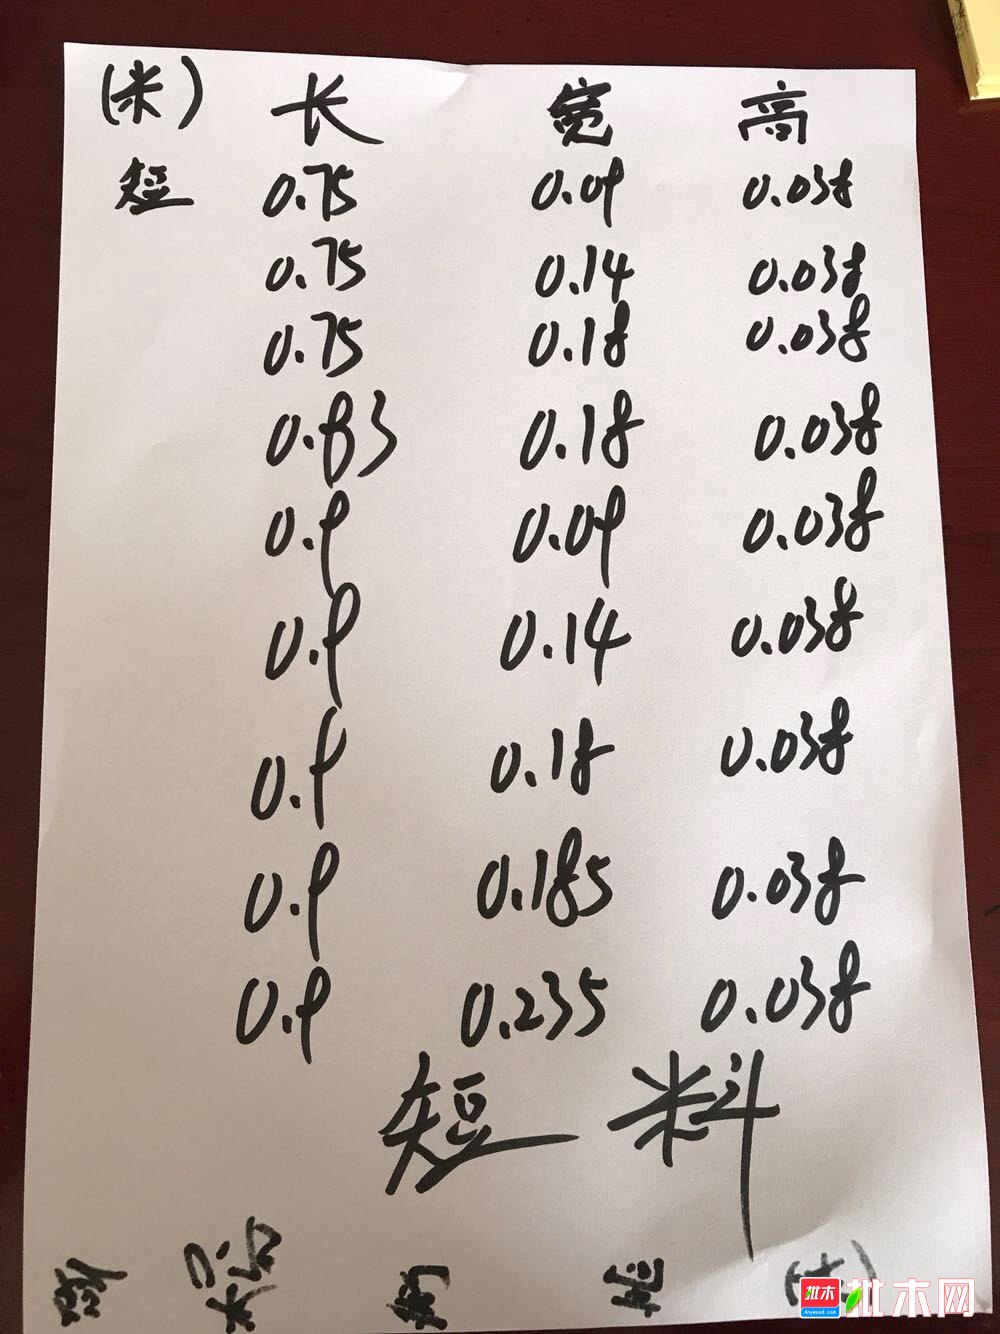 (米) 长 宽 高
短 0.75 0.09 0.038
0.75 0.14 0.038
0.75 0.18 0.038
0.83 0.18 0.038
0.9 0.09 0.038
0.9 0.14 0.038
0.9 0.18 0.038
0.9 0.185 0.038
0.9 0.235 0.038
短 料
批木 批木网
Anywood.com